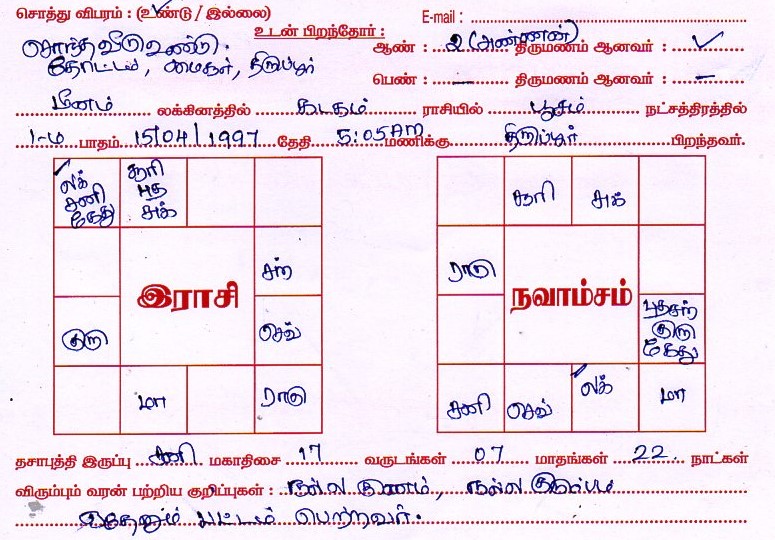 சொத்து விபரம் : (உண்டு / இல்லை)
E-mail :
உடன் பிறந்தோர் :
சொந்த வீடு உண்டு.
ஆண் : 2 (அண்ணன்) திருமணம் ஆனவர் : ✓
தோட்டம், திருப்பூர்
பெண் : — திருமணம் ஆனவர் : —
மீனம் லக்கினத்தில் கடகம் ராசியில் பூசம் நட்சத்திரத்தில்
1-ம் பாதம் 15/04/1997 தேதி 5:05 AM மணிக்கு திருப்பூர் பிறந்தவர்.
லக் சனி கேது
சூரி புத சுக்
சந்
செவ்
குரு
மா
ராகு
இராசி
சூரி
சுக்
ராகு
புத சந் குரு கேது
சனி
செவ்
லக்
மா
நவாம்சம்
தசாபுத்தி இருப்பு சனி மகாதிசை 17 வருடங்கள் 07 மாதங்கள் 22 நாட்கள்
விரும்பும் வரன் பற்றிய குறிப்புகள் : நல்ல குணம், நல்ல குடும்பம்
ஏதேனும் பட்டம் பெற்றவர்.